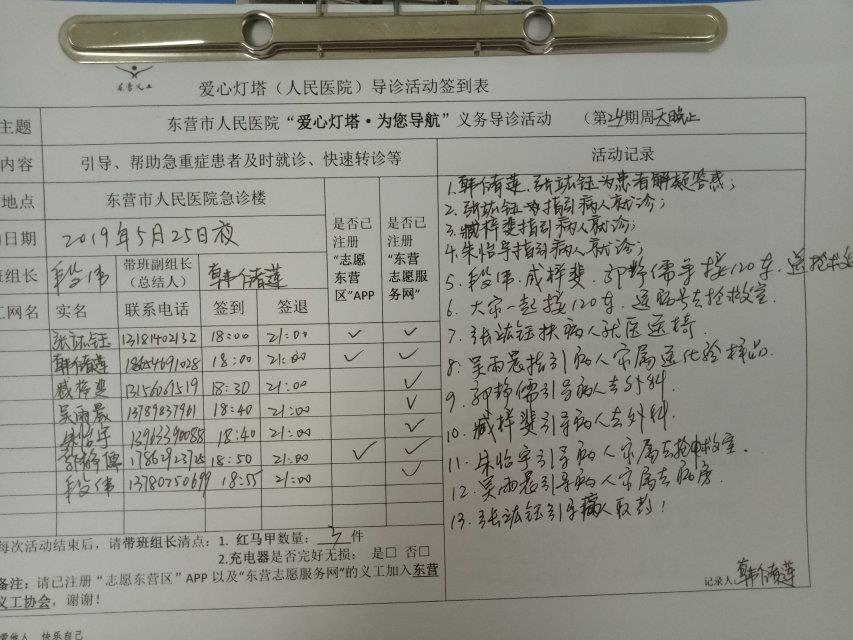 东营义工
爱心灯塔（人民医院）导诊活动签到表
主题 东营市人民医院“爱心灯塔·为您导航”义务导诊活动 （第24期周六晚上
内容 引导、帮助急重症患者及时就诊、快速转诊等 活动记录
地点 东营市人民医院急诊楼
日期 2019年5月25日夜
班组长 段伟 带班副组长（总结人） 韩俏莲
是否已注册“志愿东营区”APP
是否已注册“东营志愿服务网”
工网名 实名 联系电话 签到 签退
张竑钰 13181402132 18:00 21:00 ✓ ✓
韩俏莲 18654691028 18:00 21:00 ✓ ✓
臧梓斐 13156061519 18:30 21:00 ✓
吴雨晨 13789837961 18:40 21:00 ✓
朱怡宇 13963390088 18:40 21:00 ✓
郭静儒 17862923725 18:50 21:00 ✓ ✓
段伟 13780750699 18:55 21:00 ✓
1.韩俏莲、张竑钰为患者解疑答惑；
2.张竑钰指引病人就诊；
3.臧梓斐指引病人就诊；
4.朱怡宇指引病人就诊；
5.段伟.臧梓斐.郭静儒等接120车.送抢救
6.大家一起接120车.送病号去抢救室.
7.张竑钰扶病人就医送椅.
8.吴雨晨指引病人家属送化验样品.
9.郭静儒引导病人去外科.
10.臧梓斐引导病人去外科.
11.朱怡宇引导病人家属去抢救室.
12.吴雨晨引导病人家属去病房.
13.张竑钰引导病人取药！
每次活动结束后，请带班组长清点：1. 红马甲数量： 件
2.充电器是否完好无损： 是□ 否□
备注：请已注册“志愿东营区”APP 以及“东营志愿服务网”的义工加入东营
义工协会，谢谢！
记录人 韩俏莲
爱他人 快乐自己